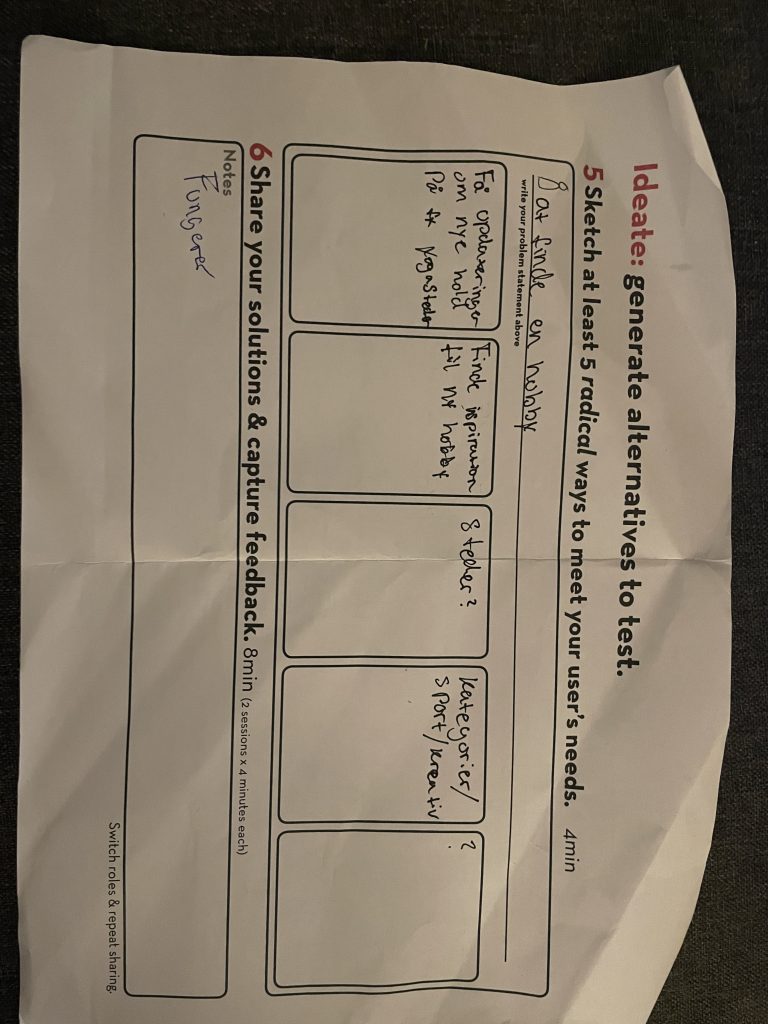 Ideate: generate alternatives to test.
5 Sketch at least 5 radical ways to meet your user's needs. 4min
at finde en hobby
write your problem statement above
Få opdateringer
om nye hold
På fx Yogasteder
Finde inspiration
til ny hobby
Steder?
Kategorier/
Sport/kreativ
?
6 Share your solutions & capture feedback. 8min (2 sessions x 4 minutes each)
Notes
Fungerer
Switch roles & repeat sharing.